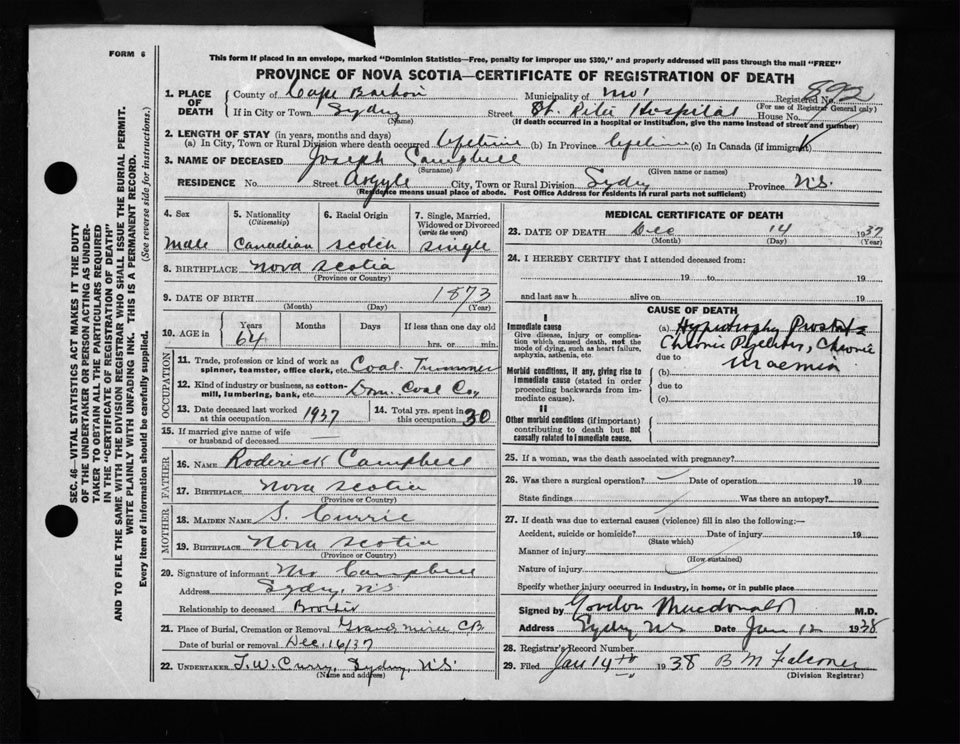 FORM 6
This form if placed in an envelope, marked "Dominion Statistics—Free, penalty for improper use $300," and properly addressed will pass through the mail "FREE"
PROVINCE OF NOVA SCOTIA—CERTIFICATE OF REGISTRATION OF DEATH
1. PLACE OF DEATH
County of Cape Breton Municipality of Registered No. 892
(For use of Registrar General only)
If in City or Town Sydney Street St. Rita Hospital House No.
(Name) (If death occurred in a hospital or institution, give the name instead of street and number)
2. LENGTH OF STAY (in years, months and days)
(a) In City, Town or Rural Division where death occurred lifetime (b) In Province lifetime (c) In Canada (if immigrant)
3. NAME OF DECEASED Joseph Campbell
(Surname) (Given name or names)
RESIDENCE No. Street Argyle City, Town or Rural Division Sydney Province N.S.
(Residence means usual place of abode. Post Office Address for residents in rural parts not sufficient)
4. Sex 5. Nationality (Citizenship) 6. Racial Origin 7. Single, Married, Widowed or Divorced (write the word)
male Canadian scotch single
8. BIRTHPLACE Nova Scotia
(Province or Country)
9. DATE OF BIRTH 1873
(Month) (Day) (Year)
10. AGE in Years Months Days If less than one day
64 hrs. or min.
OCCUPATION
11. Trade, profession or kind of work as spinner, teamster, office clerk, etc. Coal Trimmer
12. Kind of industry or business, as cotton-mill, lumbering, bank, etc. Dom. Coal Coy
13. Date deceased last worked at this occupation 1937 14. Total yrs. spent in this occupation 30
15. If married give name of wife or husband of deceased
FATHER
16. NAME Roderick Campbell
17. BIRTHPLACE Nova Scotia
(Province or Country)
MOTHER
18. MAIDEN NAME S. Currie
19. BIRTHPLACE Nova Scotia
(Province or Country)
20. Signature of informant Campbell
Address Sydney, N.S
Relationship to deceased Brother
21. Place of Burial, Cremation or Removal Grand Mira C.B.
Date of burial or removal Dec. 16/37
22. UNDERTAKER T. W. Curry, Sydney, N.S.
(Name and address)
MEDICAL CERTIFICATE OF DEATH
23. DATE OF DEATH Dec 14 1937
(Month) (Day) (Year)
24. I HEREBY CERTIFY that I attended deceased from:
19 to 19
and last saw h alive on 19
CAUSE OF DEATH
I
Immediate cause
Give disease, injury or complication which caused death, not the mode of dying, such as heart failure, asphyxia, asthenia, etc.
(a) Hypertrophy Prostate
Chronic Pyelitis, Chronic
due to
Uraemia
Morbid conditions, if any, giving rise to immediate cause (stated in order proceeding backwards from immediate cause).
(b)
due to
(c)
II
Other morbid conditions (if important) contributing to death but not causally related to immediate cause.
25. If a woman, was the death associated with pregnancy?
26. Was there a surgical operation? Date of operation 19
State findings Was there an autopsy?
27. If death was due to external causes (violence) fill in also the following:—
Accident, suicide or homicide? Date of injury 19
(State which)
Manner of injury
(How sustained)
Nature of injury
Specify whether injury occurred in industry, in home, or in public place
Signed by Gordon Macdonald M.D.
Address Sydney N.S Date Jan 12 1938
28. Registrar's Record Number
29. Filed Jan 14th 1938 B M Falconer
(Division Registrar)
SEC. 46—VITAL STATISTICS ACT MAKES IT THE DUTY
OF THE UNDERTAKER OR PERSON ACTING AS UNDERTAKER TO OBTAIN ALL THE PARTICULARS REQUIRED
IN THE "CERTIFICATE OF REGISTRATION OF DEATH"
AND TO FILE THE SAME WITH THE DIVISION REGISTRAR WHO SHALL ISSUE THE BURIAL PERMIT.
WRITE PLAINLY WITH UNFADING INK. THIS IS A PERMANENT RECORD.
Every item of information should be carefully supplied. (See reverse side for instructions.)